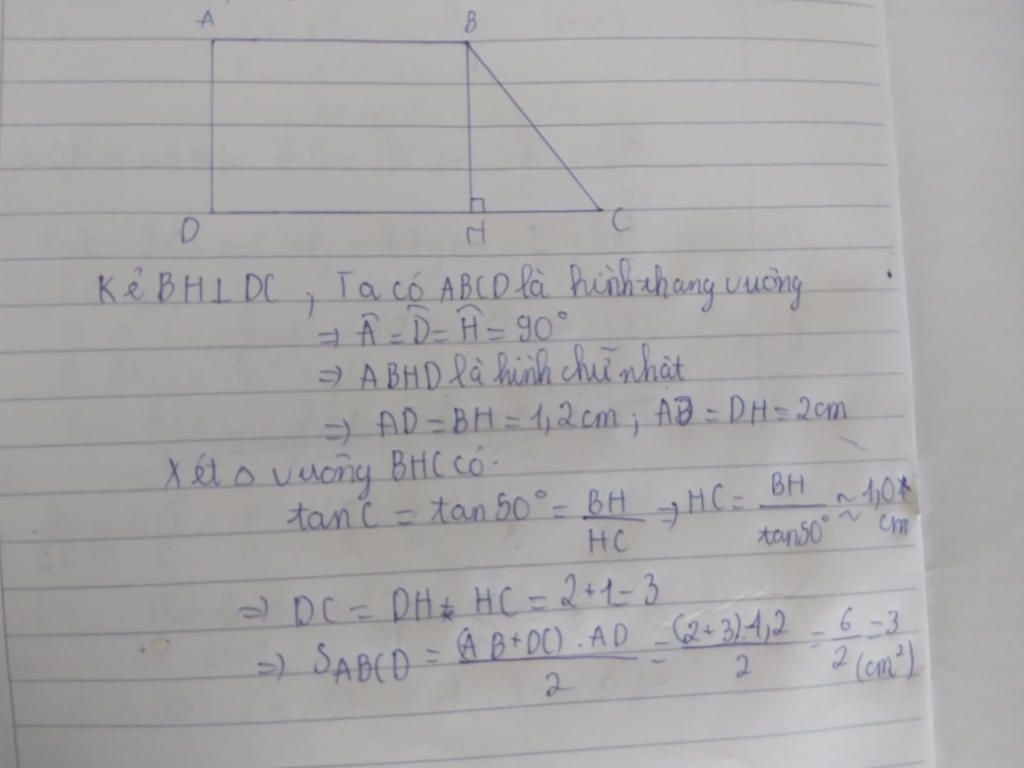 A B
D H C
Kẻ BH⊥DC, Ta có ABCD là hình thang vuông
⇒ Â = D̂ = Ĥ = 90°
⇒ ABHD là hình chữ nhật
⇒ AD = BH = 1,2cm ; AB = DH = 2cm
Xét Δ vuông BHC có:
tanC = tan50° = BH/HC ⇒ HC = BH/tan50° ≈ 1,0 cm
⇒ DC = DH + HC = 2+1=3
⇒ SABCD = (AB+DC).AD/2 = (2+3).1,2/2 = 6/2 = 3 (cm²)